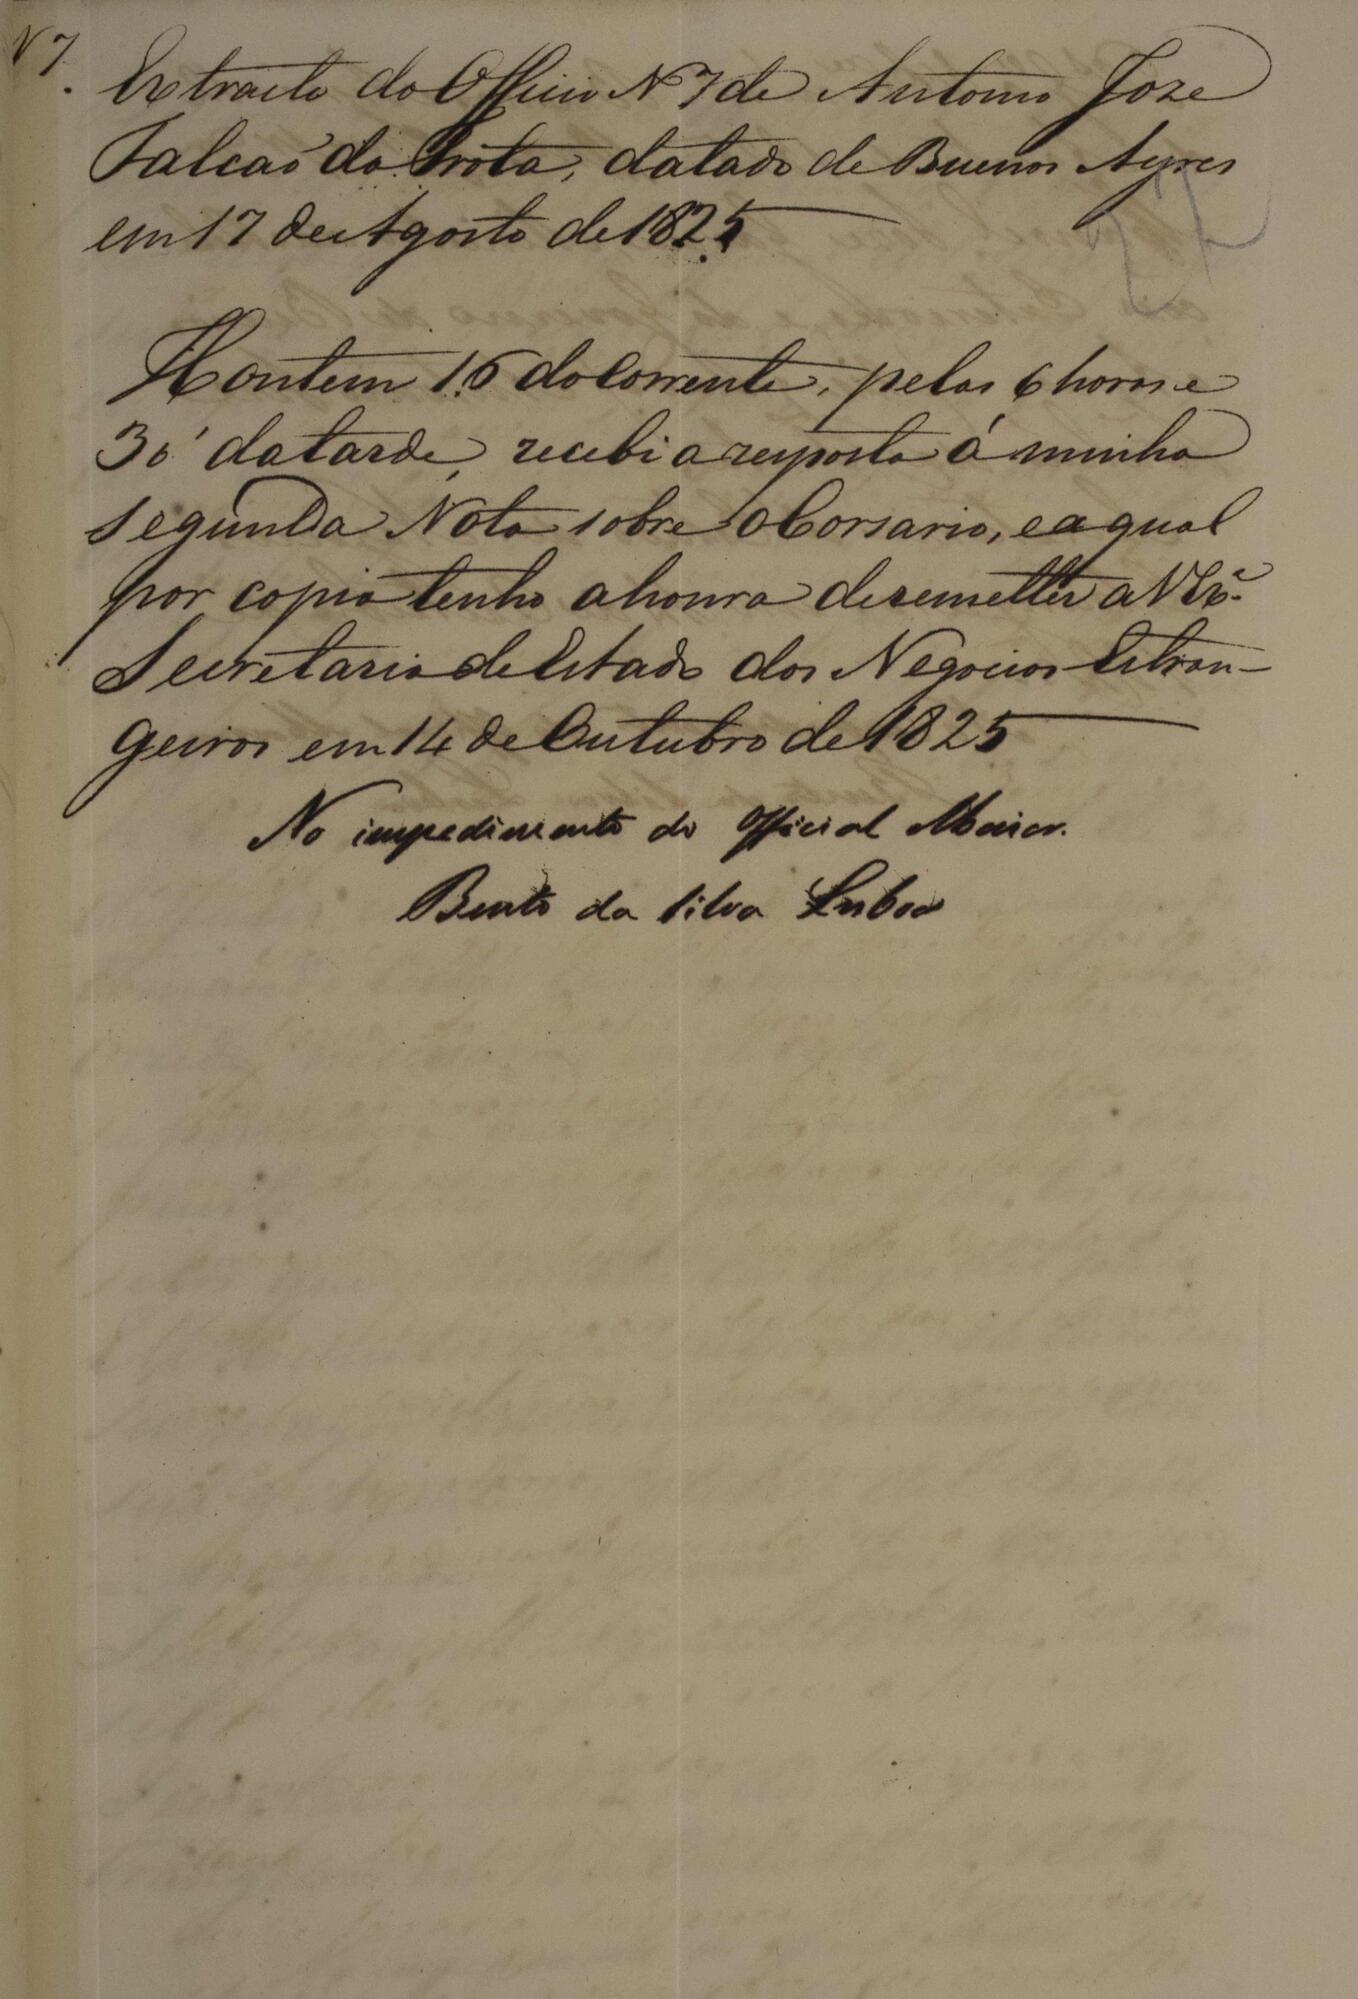 N 7
Extracto do Officio N 7 de Antonio Joze
Falcaõ da Frota, datado de Buenos Ayres
em 17 de Agosto de 1825
Hontem 16 do Corrente, pelas 6 horas e
30' da tarde, recebi a resposta á minha
segunda Nota sobre o Corsario, e a qual
por copia tenho a honra de remetter a V Exª.
Secretaria de Estado dos Negocios Estran-
geiros em 14 de Outubro de 1825
No impedimento do Official Maior.
Bento da Silva Lisboa